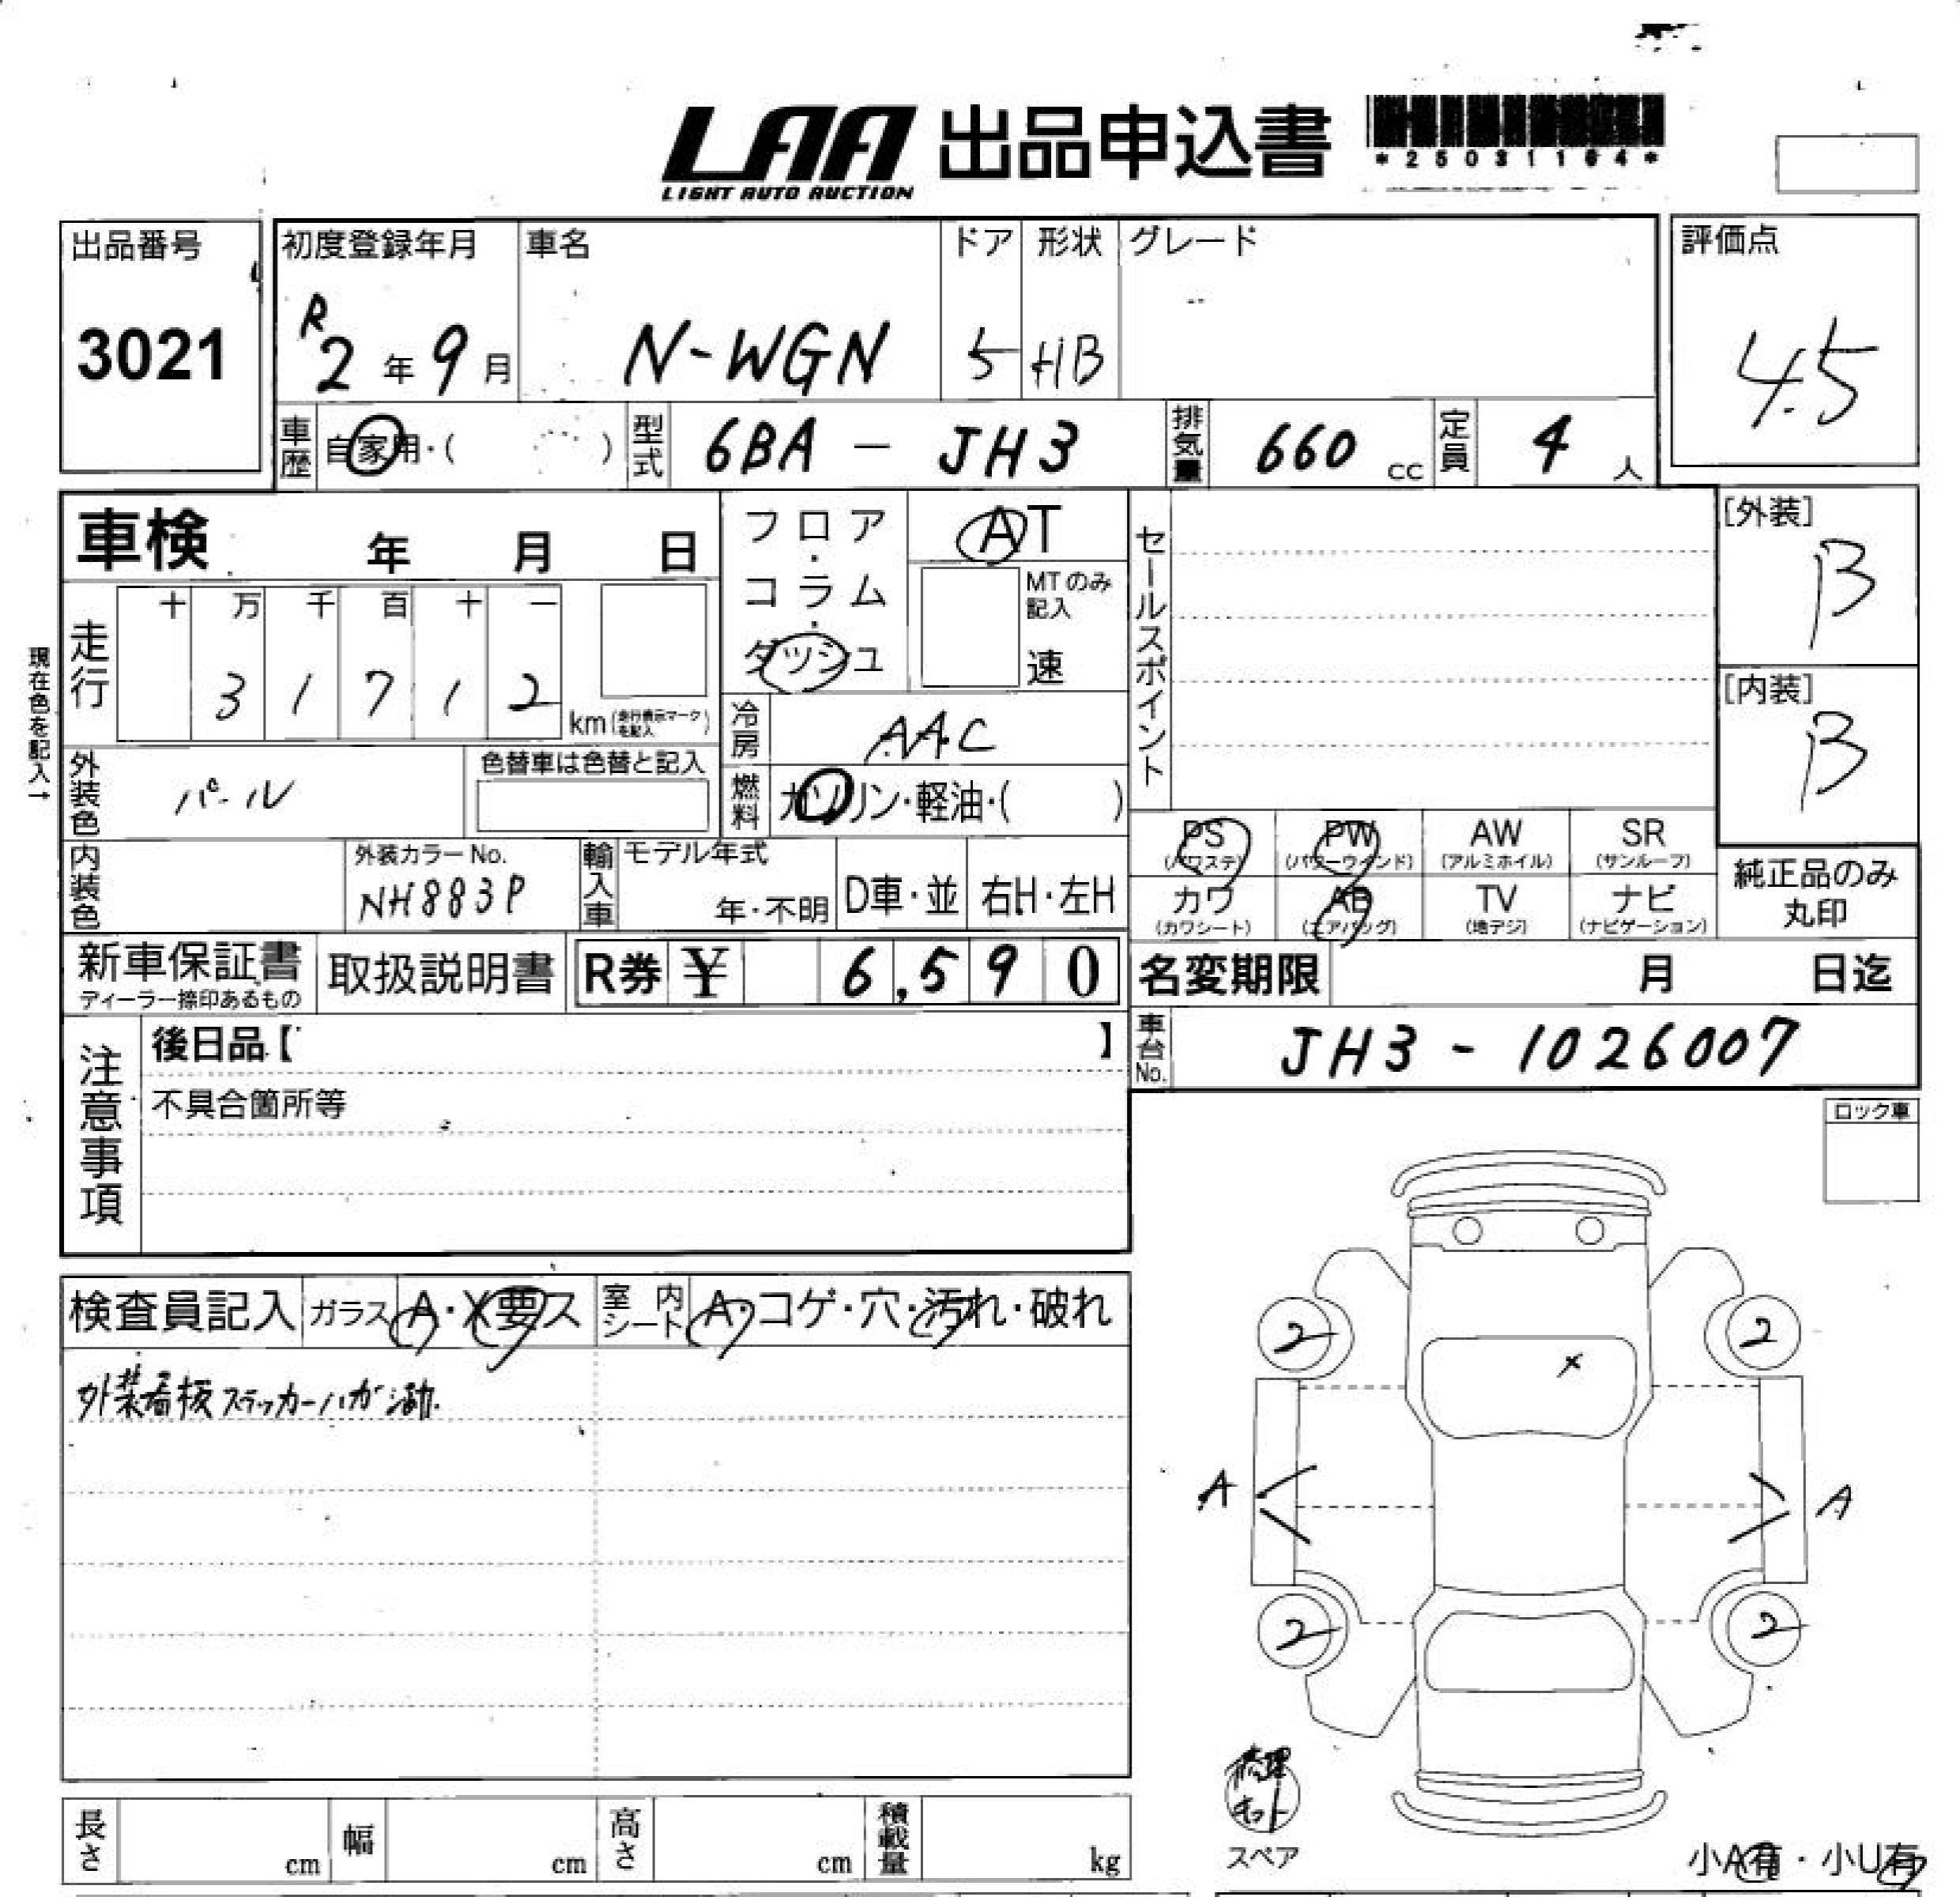 LAA 出品申込書
LIGHT AUTO AUCTION
*25031104*
出品番号 初度登録年月 車名 ドア 形状 グレード 評価点
3021 R2年9月 N-WGN 5 HB 4.5
車歴 自家用・( ) 型式 6BA - JH3 排気量 660 cc 定員 4 人
車検 年 月 日
フロア・コラム・ダッシュ
AT
MTのみ記入
速
セールスポイント
[外装]
B
[内装]
B
現在色を記入→
走行 十 万 千 百 十 一
3 1 7 1 2 km (走行表示マークを記入)
冷房 AAC
外装色 パール 色替車は色替と記入
燃料 ガソリン・軽油・( )
内装色 外装カラーNo. NH883P
輸入車 モデル年式 年・不明 D車・並 右H・左H
PS (パワステ) PW (パワーウインド) AW (アルミホイル) SR (サンルーフ)
カワ (カワシート) AB (エアバッグ) TV (地デジ) ナビ (ナビゲーション)
純正品のみ丸印
新車保証書 ディーラー捺印あるもの 取扱説明書 R券 ¥ 6,590
名変期限 月 日迄
車台No. JH3 - 1026007
注意事項 後日品【 】
不具合箇所等
ロック車
検査員記入 ガラス A・X要ス 室内シート A・コゲ・穴・汚れ・破れ
外装看板ステッカーハガシ跡.
2 2
X
A A
2 2
修理キット
スペア
小A有・小U有
長さ cm 幅 cm 高さ cm 積載量 kg